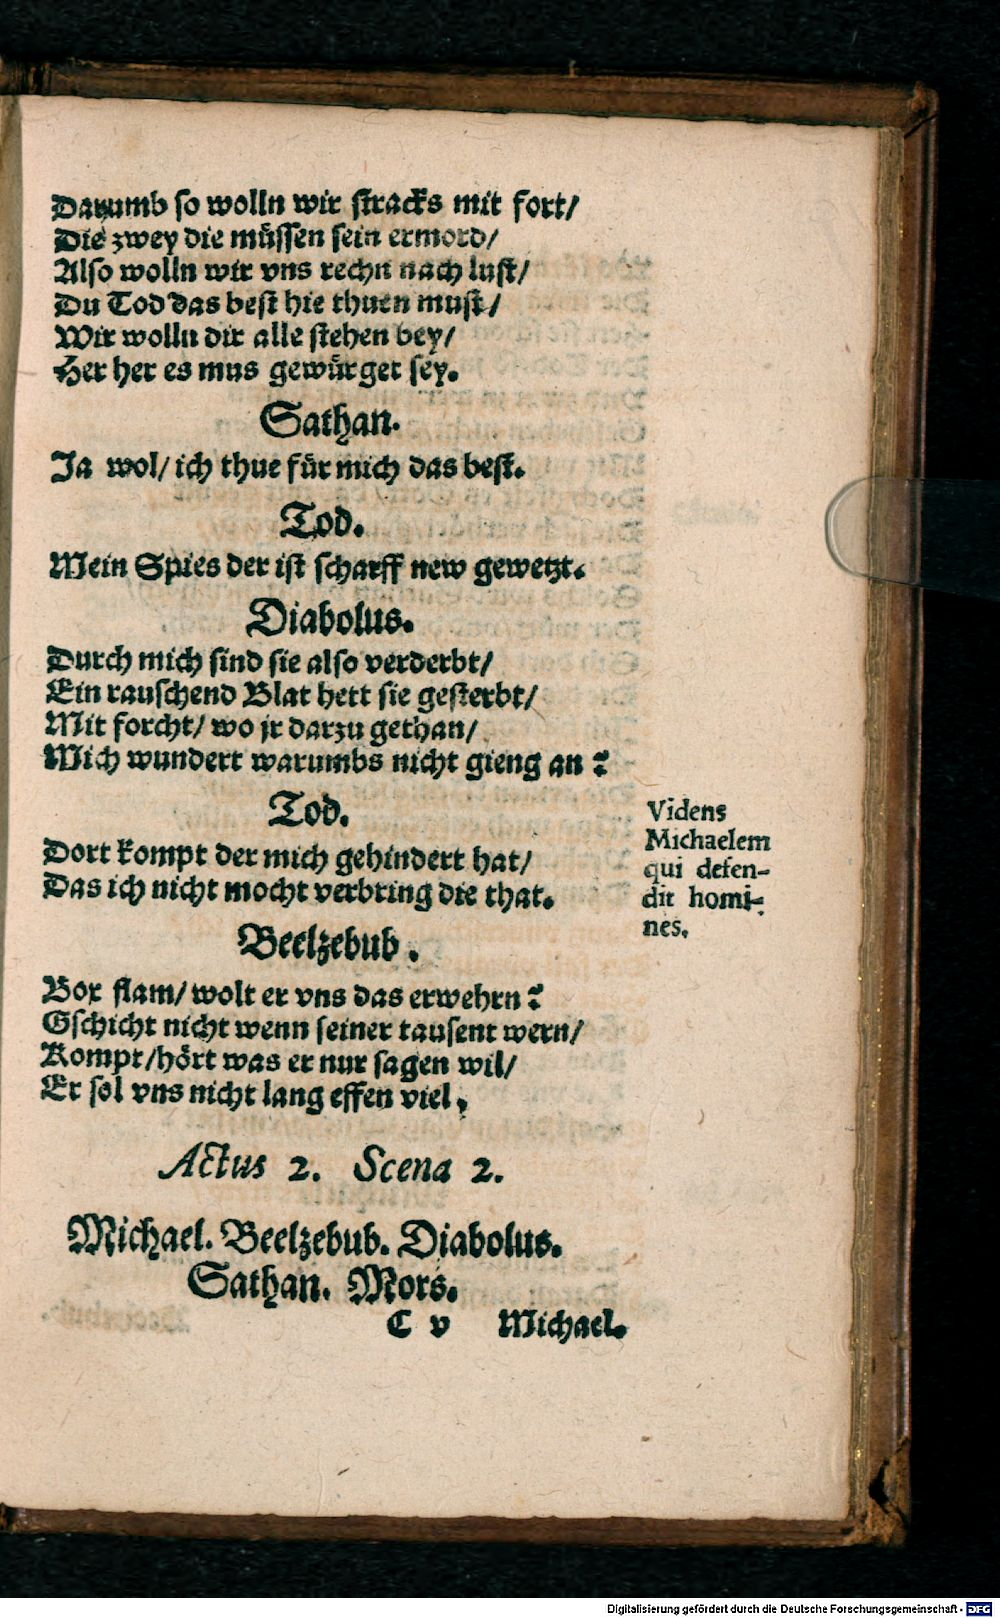 Darumb so wolln wir stracks mit fort/
Die zwey die müssen sein ermord/
Also wolln wir vns rechn nach lust/
Du Tod das best hie thuen must/
Wir wolln dir alle stehen bey/
Her her es mus gewürget sey.
Sathan.
Ja wol/ ich thue für mich das best.
Tod.
Mein Spies der ist scharff new gewetzt.
Diabolus.
Durch mich sind sie also verderbt/
Ein rauschend Blat hett sie gesterbt/
Mit forcht/ wo jr darzu gethan/
Mich wundert warumbs nicht gieng an?
Tod.
Dort kompt der mich gehindert hat/
Das ich nicht mocht verbring die that.
Videns
Michaelem
qui defen-
dit homi-
nes.
Beelzebub.
Box flam/ wolt er vns das erwehrn?
Gschicht nicht wenn seiner tausent wern/
Kompt/ hört was er nur sagen wil/
Er sol vns nicht lang effen viel.
Actus 2. Scena 2.
Michael. Beelzebub. Diabolus.
Sathan. Mors.
C v Michael.
Digitalisierung gefördert durch die Deutsche Forschungsgemeinschaft - DFG